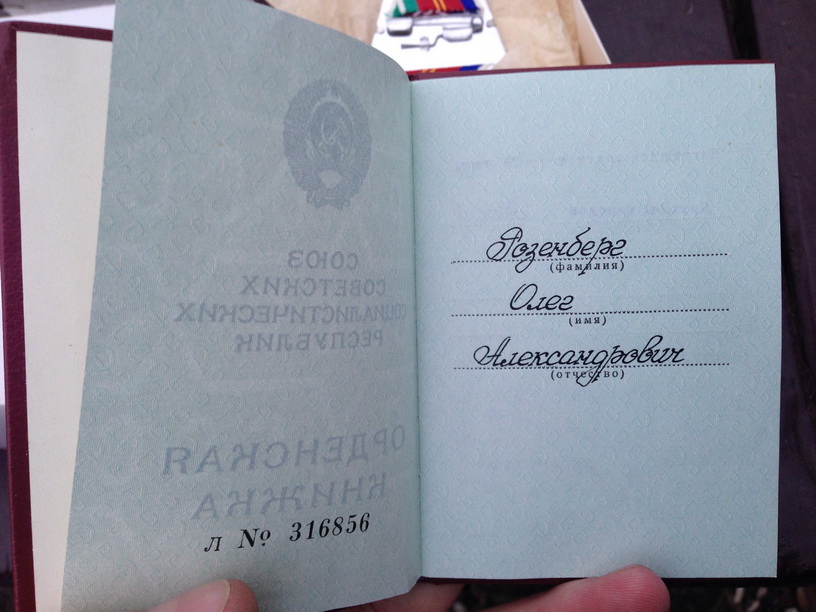 СОЮЗ
СОВЕТСКИХ
СОЦИАЛИСТИЧЕСКИХ
РЕСПУБЛИК
ОРДЕНСКАЯ
КНИЖКА
Л № 316856
Розенберг
(фамилия)
Олег
(имя)
Александрович
(отчество)